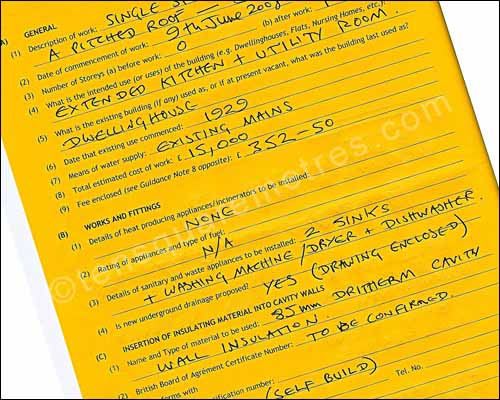 (A) GENERAL
(1) Description of work: SINGLE
A PITCHED ROOF
(2) Date of commencement of work: 9th June 2008
(3) Number of Storeys (a) before work: 0 (b) after work: 1
(4) What is the intended use (or uses) of the building (e.g. Dwellinghouses, Flats, Nursing Homes, etc.):
EXTENDED KITCHEN + UTILITY ROOM.
(5) What is the existing building (if any) used as, or if at present vacant, what was the building last used as?
DWELLINGHOUSE
(6) Date that existing use commenced: 1929
(7) Means of water supply: EXISTING MAINS
(8) Total estimated cost of work: £ 15,000
(9) Fee enclosed (see Guidance Note 8 opposite): £ 352-50
(B) WORKS AND FITTINGS
(1) Details of heat producing appliances/incinerators to be installed:
NONE
(2) Rating of appliances and type of fuel:
N/A
(3) Details of sanitary and waste appliances to be installed: 2 SINKS
+ WASHING MACHINE/DRYER + DISHWASHER.
(4) Is new underground drainage proposed? YES (DRAWING ENCLOSED)
(C) INSERTION OF INSULATING MATERIAL INTO CAVITY WALLS
(1) Name and Type of material to be used: 85mm DRITHERM CAVITY
WALL INSULATION.
(2) British Board of Agrément Certificate Number: TO BE CONFIRMED.
forms with
number: (SELF BUILD) Tel. No.